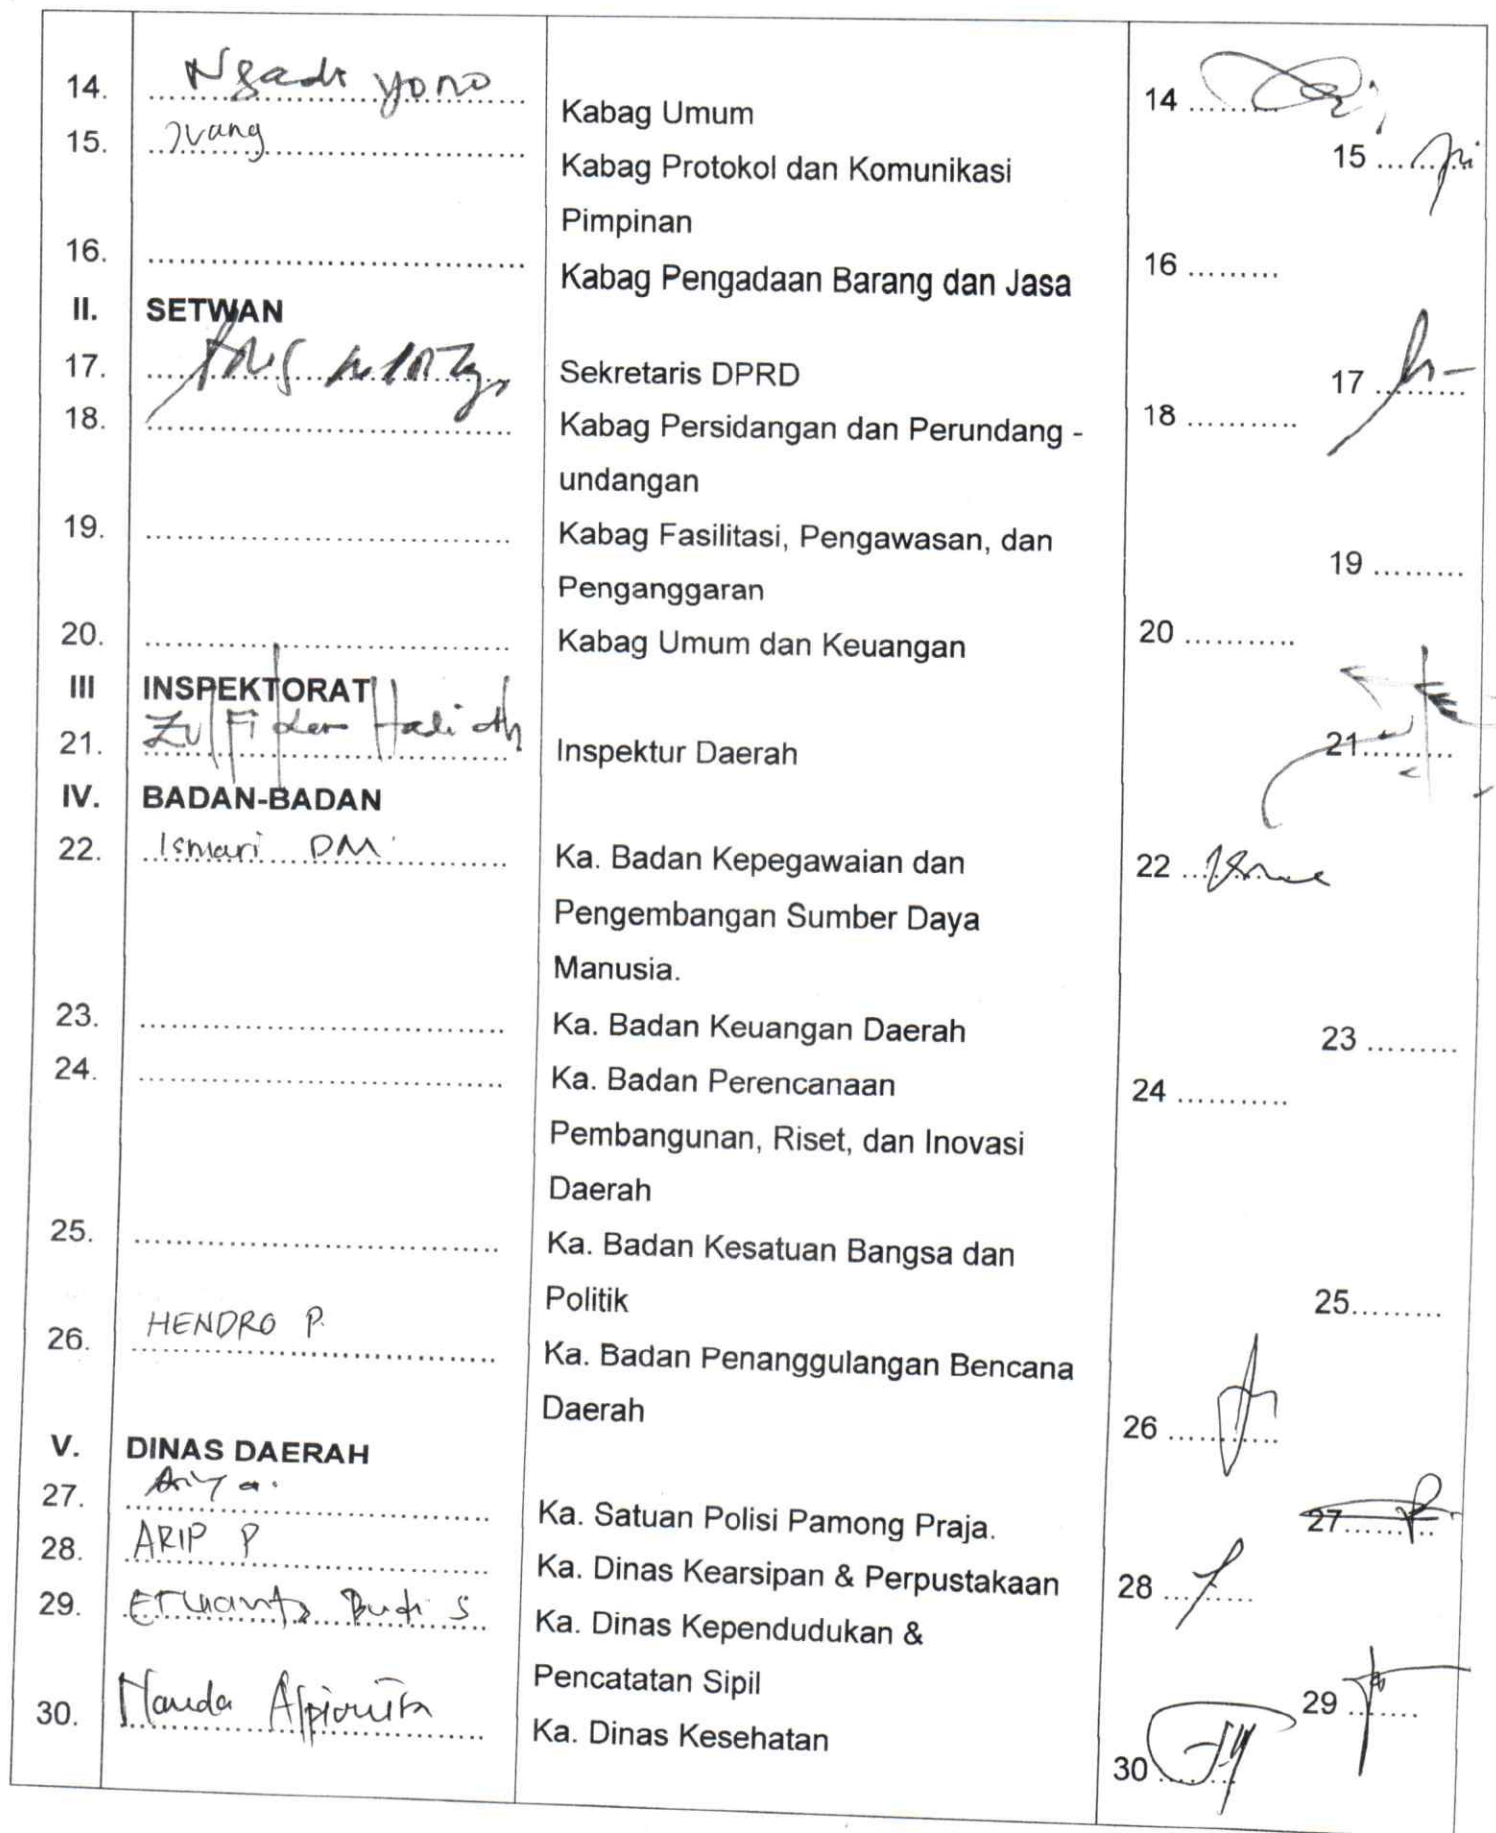 14. Ngadi yono Kabag Umum 14 .........
15. Ivang Kabag Protokol dan Komunikasi 15 .........
Pimpinan
16. .............................. Kabag Pengadaan Barang dan Jasa 16 .........
II. SETWAN
17. Sekretaris DPRD 17 .........
18. .............................. Kabag Persidangan dan Perundang -
undangan 18 ...........
19. .............................. Kabag Fasilitasi, Pengawasan, dan
Penganggaran 19 .........
20. .............................. Kabag Umum dan Keuangan 20 ...........
III INSPEKTORAT
21. Inspektur Daerah 21.........
IV. BADAN-BADAN
22. Ismari DM. Ka. Badan Kepegawaian dan 22 .........
Pengembangan Sumber Daya
Manusia.
23. .............................. Ka. Badan Keuangan Daerah 23 .........
24. .............................. Ka. Badan Perencanaan 24 ...........
Pembangunan, Riset, dan Inovasi
Daerah
25. .............................. Ka. Badan Kesatuan Bangsa dan
Politik 25.........
26. HENDRO P. Ka. Badan Penanggulangan Bencana
Daerah 26 ...........
V. DINAS DAERAH
27. Ka. Satuan Polisi Pamong Praja. 27.........
28. ARIP P Ka. Dinas Kearsipan & Perpustakaan 28 .........
29. Budi S Ka. Dinas Kependudukan &
Pencatatan Sipil 29 .......
30. Nanda Ka. Dinas Kesehatan 30 ........